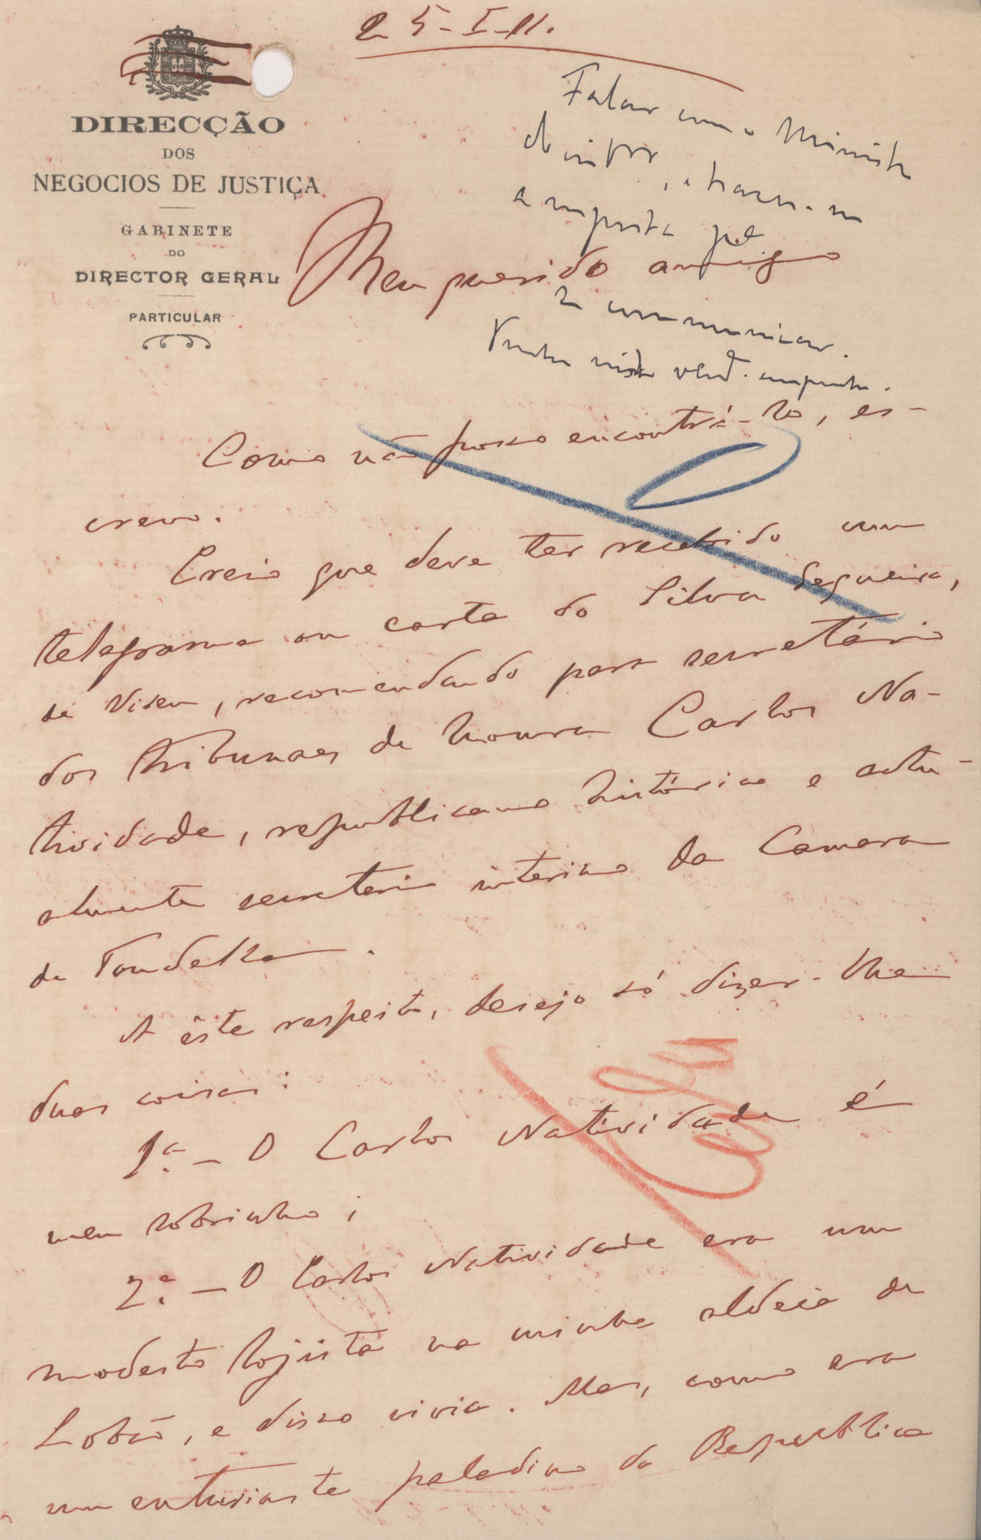 25-I-11.
DIRECÇÃO
DOS
NEGOCIOS DE JUSTIÇA
GABINETE
DO
DIRECTOR GERAL
PARTICULAR
Falar com o Ministro
a resposta
Meu querido amigo
communicar.
Como não posso encontrá-lo, es-
crevo.
Creio que deve ter recebido um
telegrama ou carta do Silva Sequeira,
de Viseu, recomendando para secretário
dos tribunaes de honra Carlos Na-
tividade, republicano histórico e actu-
almente secretario interino da Camara
de Tondella.
A êste respeito, desejo só dizer-lhe
duas coisas:
1.ª - O Carlos Natividade é
meu sobrinho;
2.ª - O Carlos Natividade era um
modesto lojista na minha aldeia de
Lobão, e disso vivia. Mas, como era
um entusiasta paladino da Republica